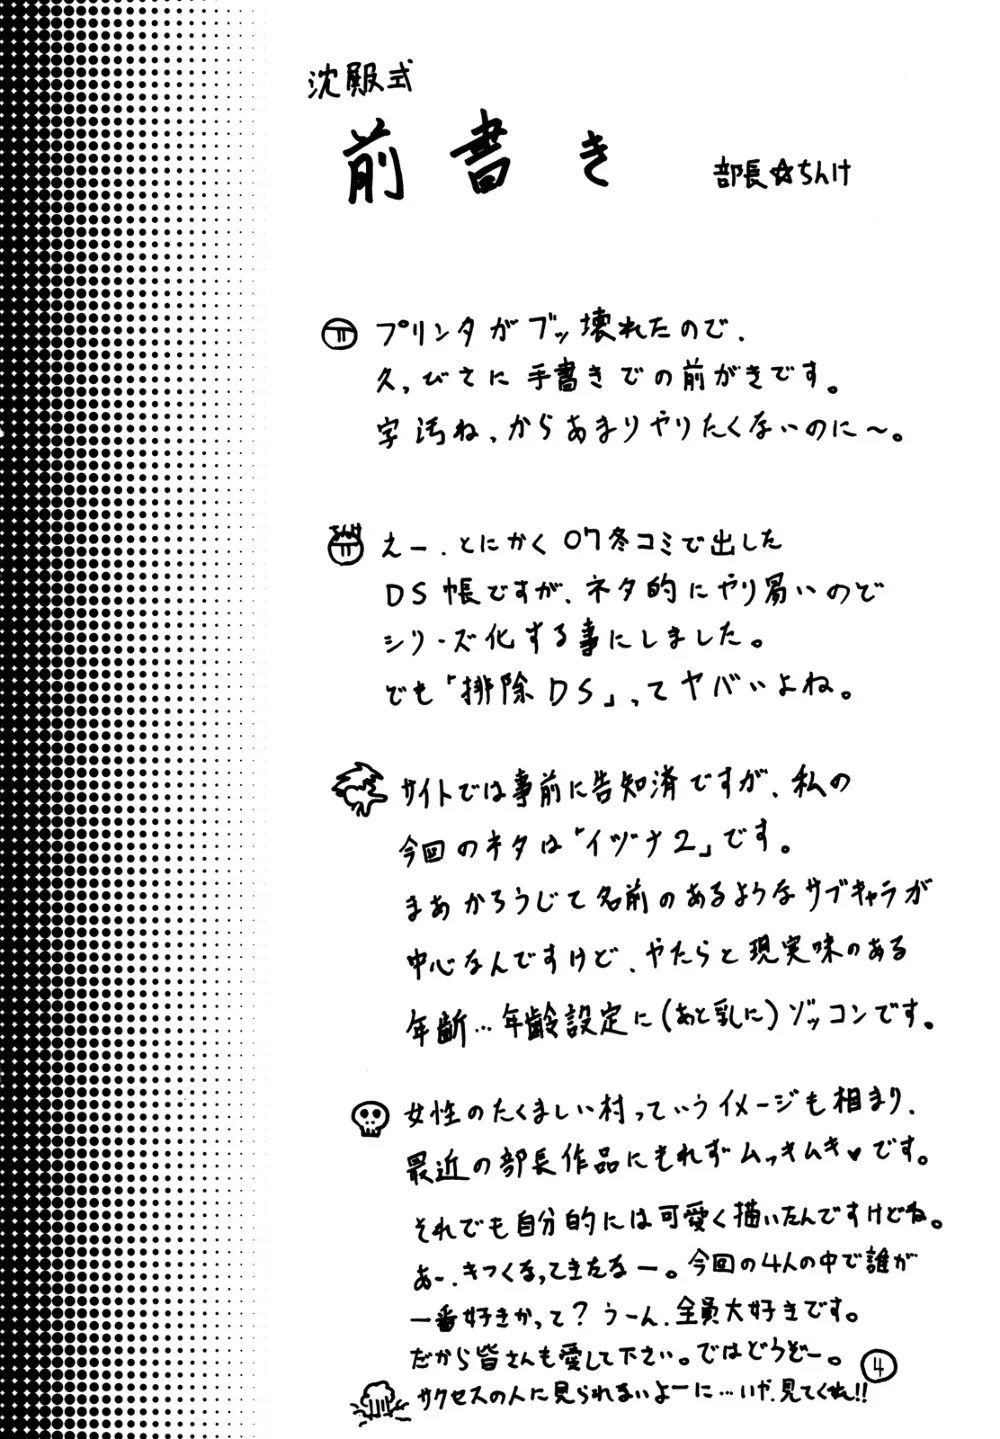 沈殿式
前書き
部長☆ちんけ
プリンタがブッ壊れたので、
久っびさに手書きでの前がきです。
字汚ねぇからあまりやりたくないのに〜。
えー、とにかく07冬コミで出した
DS帳ですが、ネタ的にやり易いので
シリーズ化する事にしました。
でも「排除DS」ってヤバいよね。
サイトでは事前に告知済ですが、私の
今回のネタは「イヅナ2」です。
まあかろうじて名前のあるようなサブキャラが
中心なんですけど、やたらと現実味のある
年齢…年齢設定に(あと乳に)ゾッコンです。
女性のたくましい村っていうイメージも相まり、
最近の部長作品にもれずムッキムキ♥です。
それでも自分的には可愛く描いたんですけどね。
あー、きつくなってきたなー。今回の4人の中で誰が
一番好きかって?うーん、全員大好きです。
だから皆さんも愛して下さい。ではどうぞー。
4
サクセスの人に見られないよーに…いや、見てくれ!!